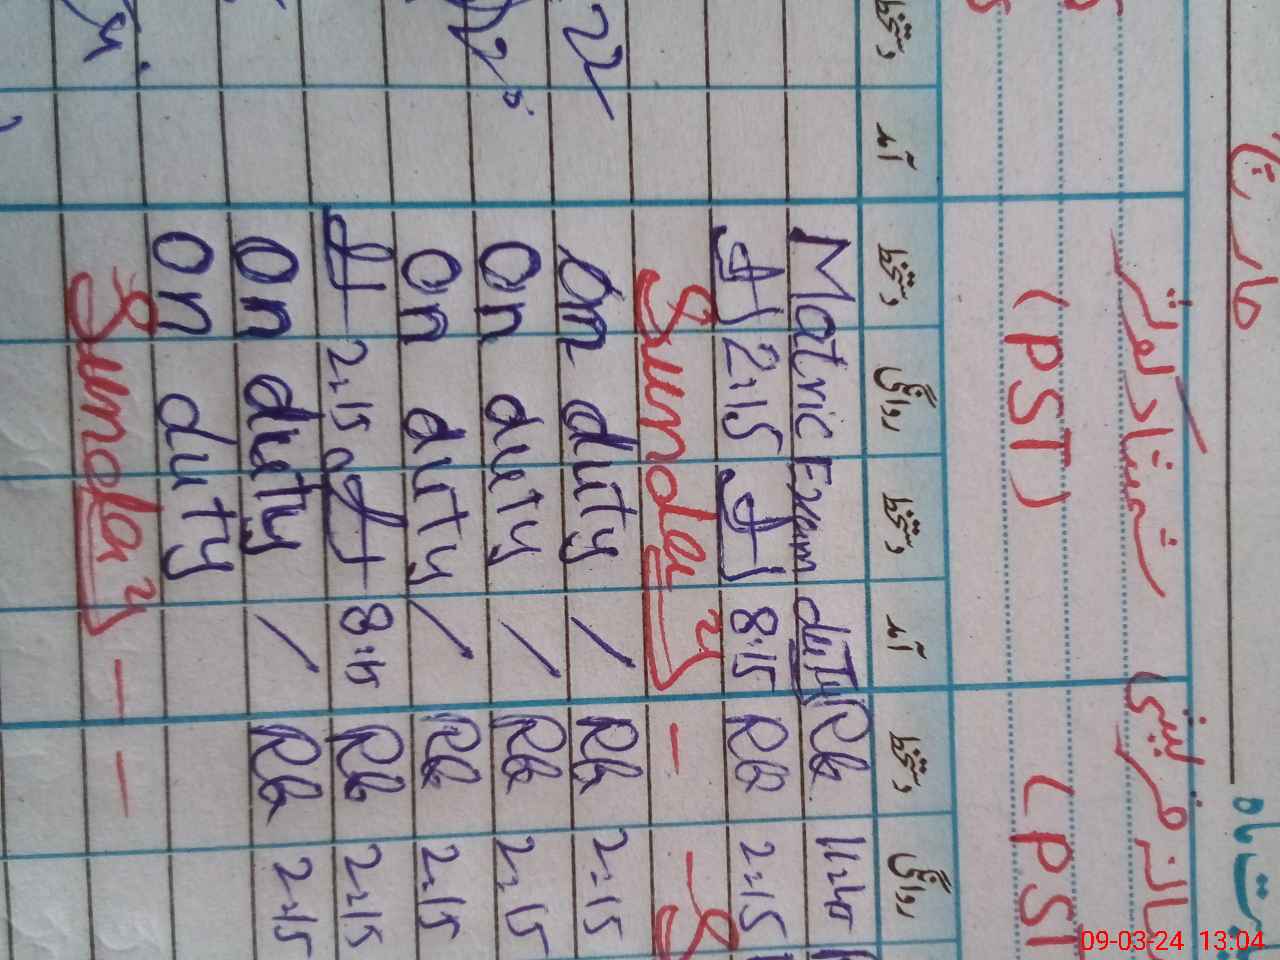 ماہ مارچ
شمشاد کوثر
(PST) (PST
روانگی دستخط آمد دستخط روانگی دستخط آمد دستخط
Matric Exam duty Rb 11:40
2:15 8:15 Rb 2:15
Sunday - - S
On duty / Rb 2:15
On duty / Rb 2:15
On duty / Rb 2:15
2:15 8:15 Rb 2:15
On duty / Rb 2:15
On duty
Sunday - -
09-03-24 13:04